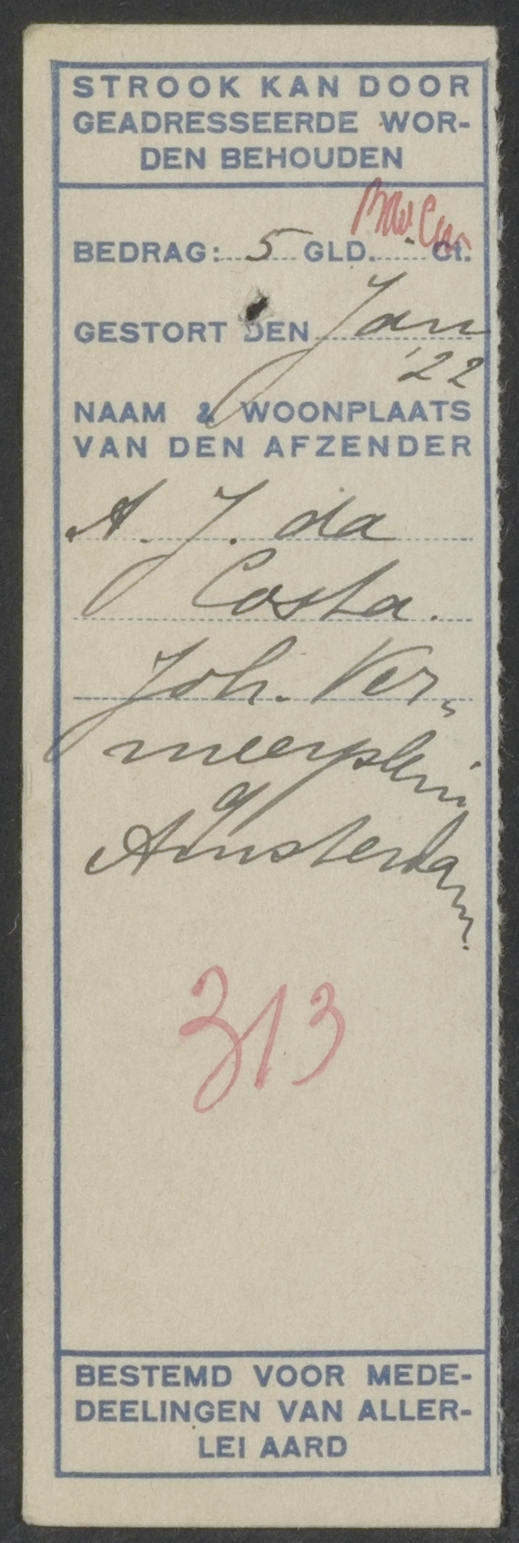 STROOK KAN DOOR
GEADRESSEERDE WOR-
DEN BEHOUDEN
BEDRAG: 5 GLD. Ct.
GESTORT DEN Jan
'22
NAAM & WOONPLAATS
VAN DEN AFZENDER
A. J. da
Costa.
Joh. Ver„
meerplein
9
Amsterdam.
313
BESTEMD VOOR MEDE-
DEELINGEN VAN ALLER-
LEI AARD